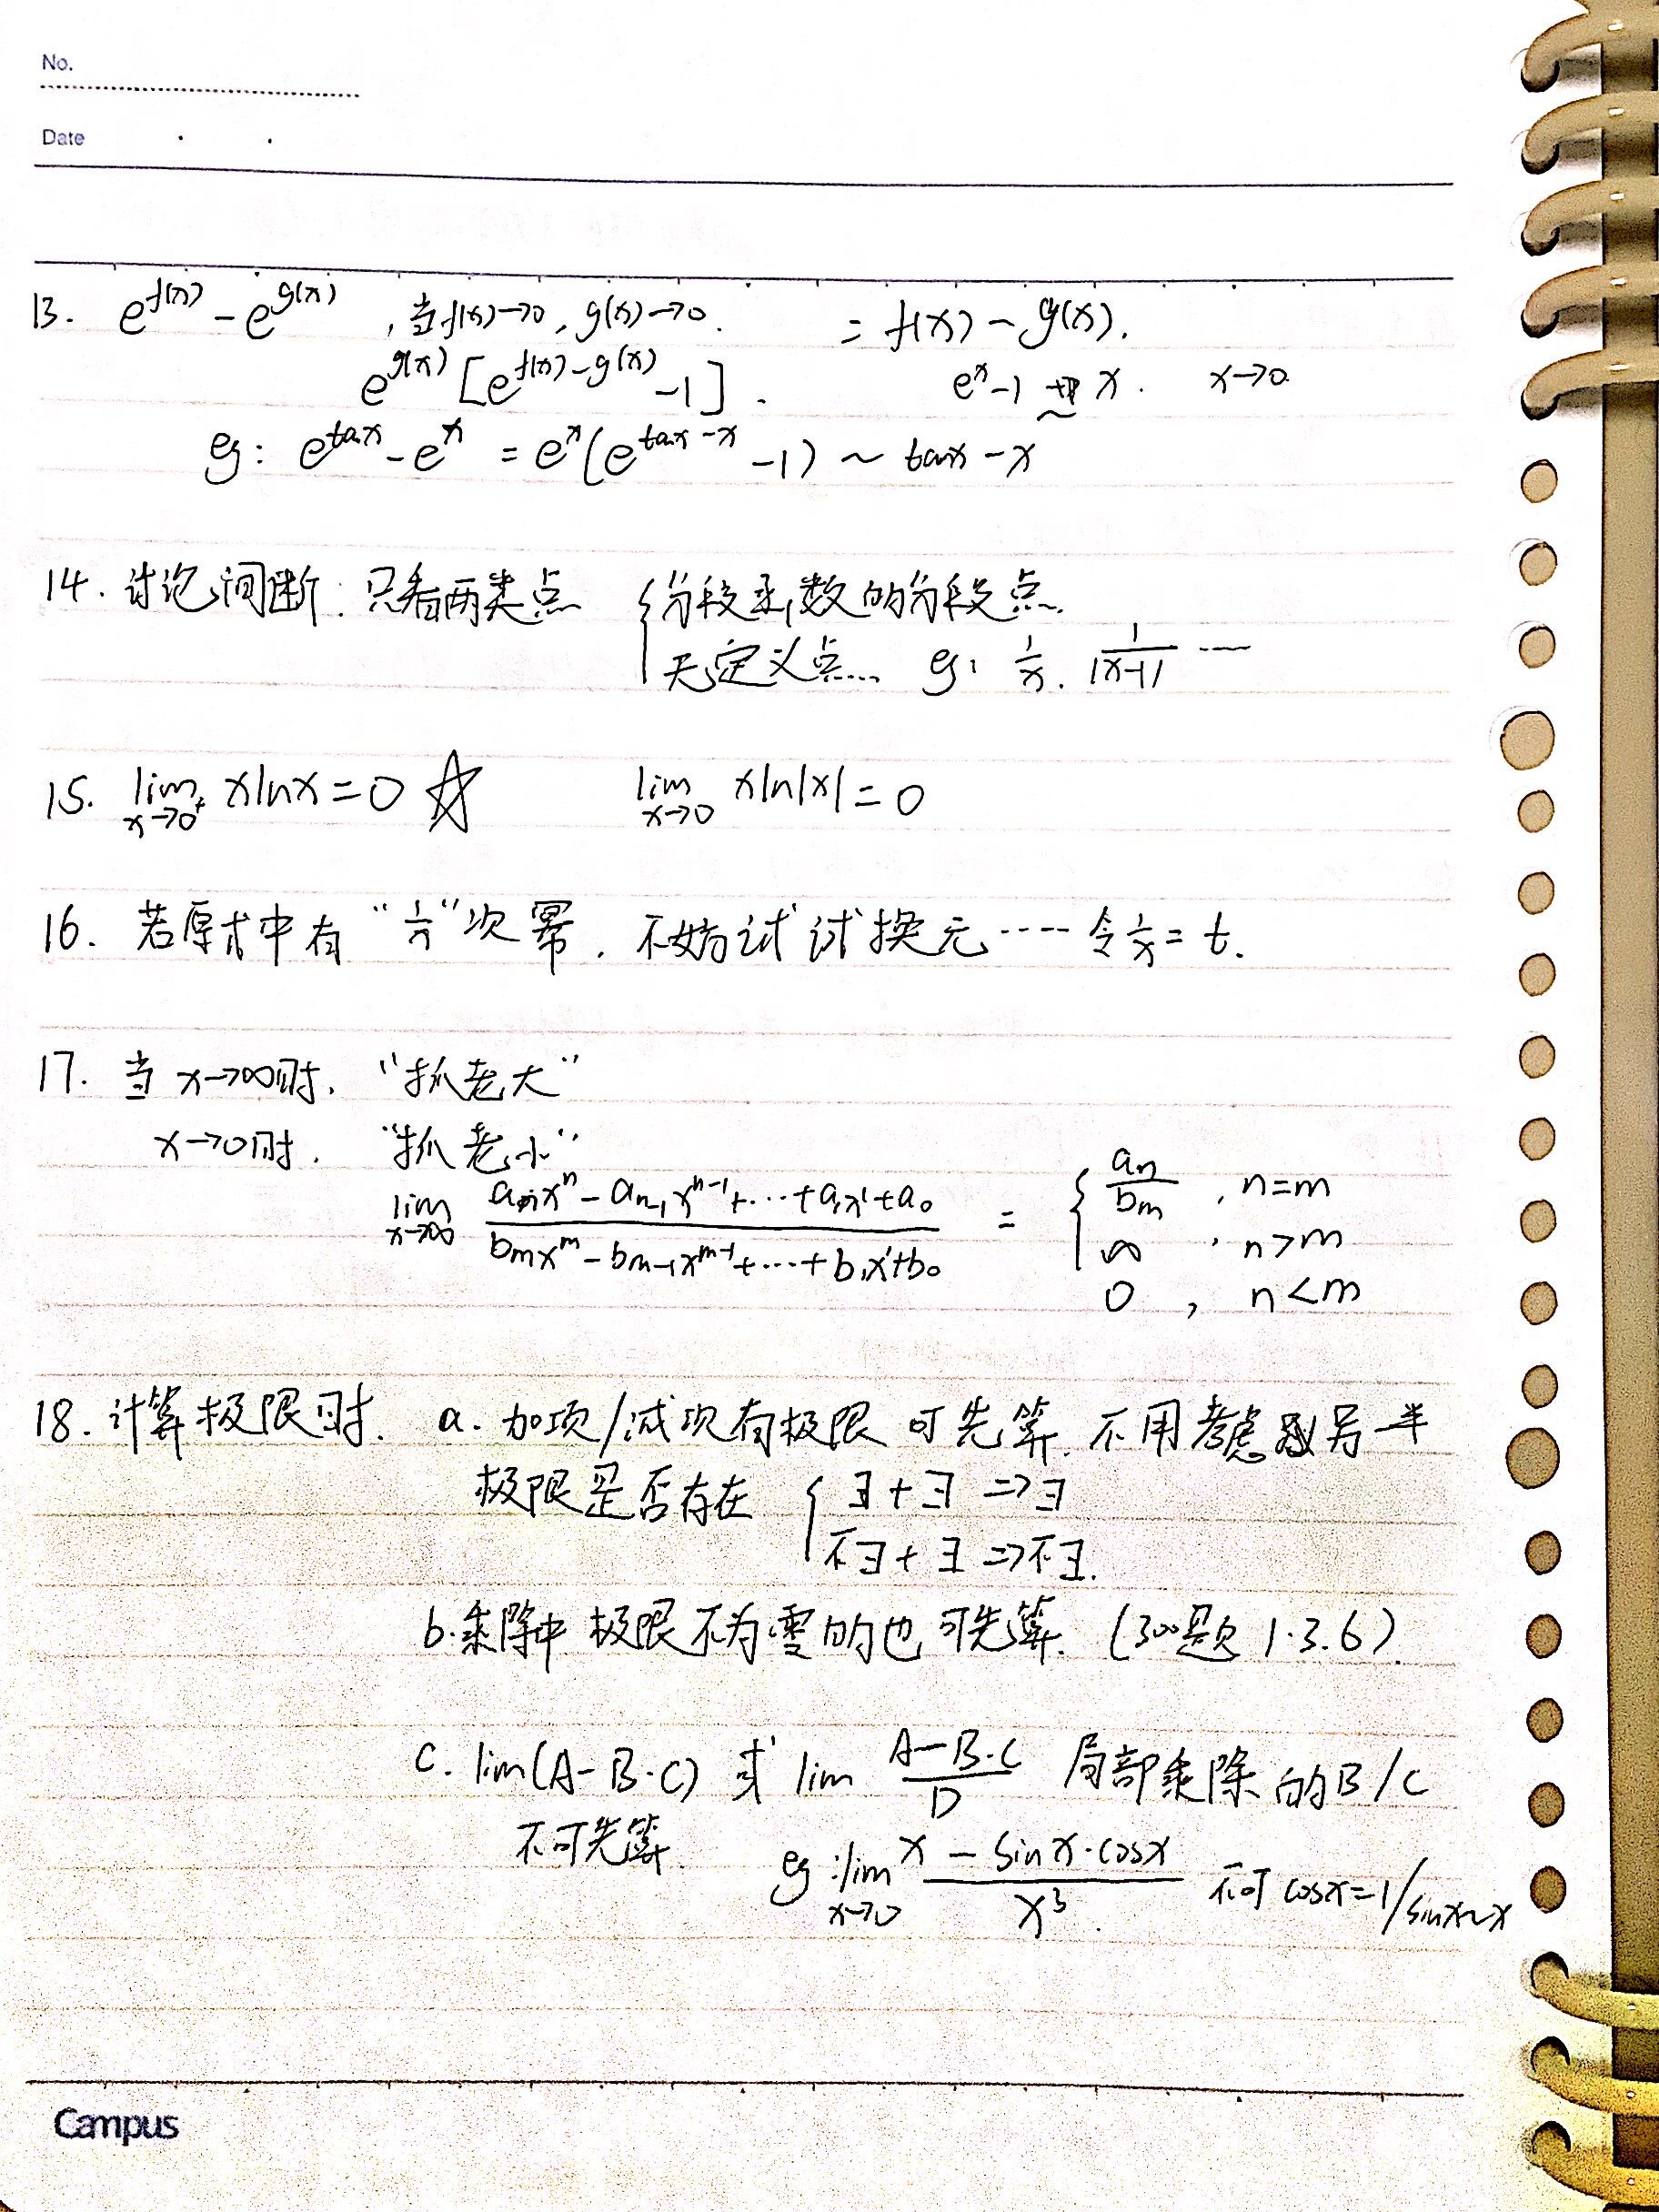 No.
Date
13. e^{f(x)} - e^{g(x)} , 当f(x)→0, g(x)→0. = f(x) - g(x).
e^{g(x)} [e^{f(x)-g(x)} -1]. e^x -1 ~ x. x→0.
eg: e^{tanx} - e^x = e^x(e^{tanx-x} -1) ~ tanx - x
14. 讨论间断: 只看两类点 { 分段函数的分段点.
无定义点... eg: 1/x. 1/|x-1| ----
15. lim_{x→0⁺} xlnx = 0 ☆ lim_{x→0} xln|x| = 0
16. 若原式中有 "1/x" 次幂. 不妨试试换元---- 令1/x = t.
17. 当 x→∞时. "抓老大"
x→0时. "抓老小"
lim_{x→∞} (a_n x^n - a_{n-1} x^{n-1} + ⋯ + a_1 x^1 + a_0)/(b_m x^m - b_{m-1} x^{m-1} + ⋯ + b_1 x^1 + b_0) = { a_n/b_m , n=m
∞ , n>m
0 , n<m
18. 计算极限时. a. 加项/减项有极限 可先算. 不用考虑另一半
极限是否存在 { ∃+∃ ⇒∃
不∃+∃ ⇒不∃.
b. 乘除中 极限不为零的也可先算. (300题 1.3.6).
c. lim(A-B·C) 或 lim (A-B·C)/D 局部乘除的B/C
不可先算. eg: lim_{x→0} (x - sinx·cosx)/x³. 不可 cosx=1/sinx~x
Campus